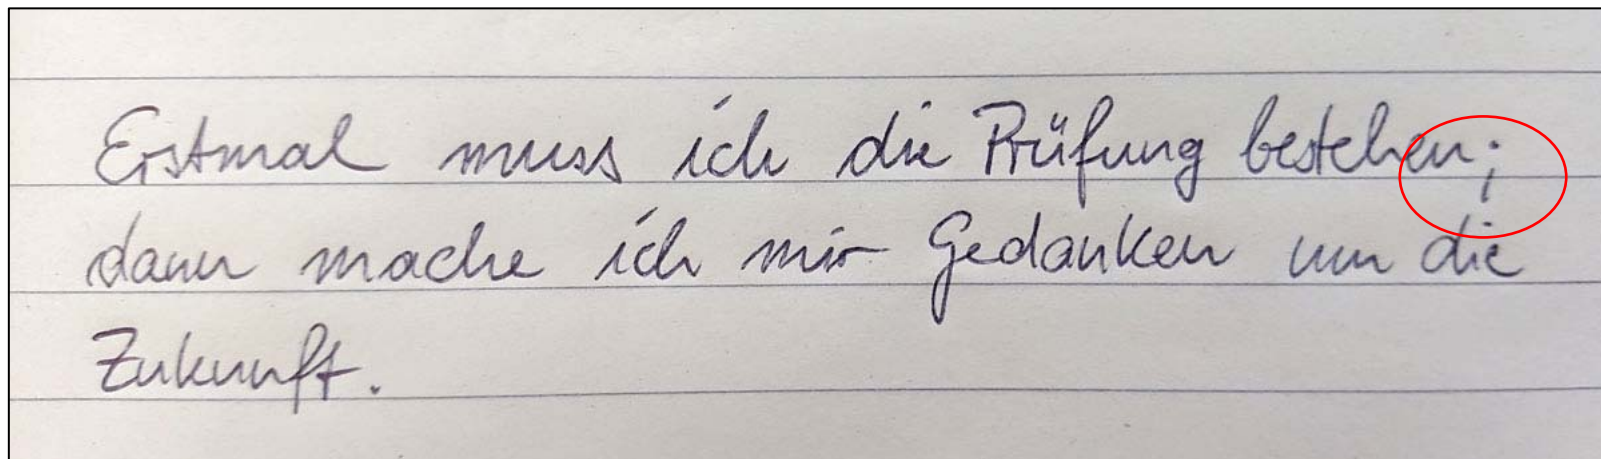 Erstmal muss ich die Prüfung bestehen;
dann mache ich mir Gedanken um die
Zukunft.